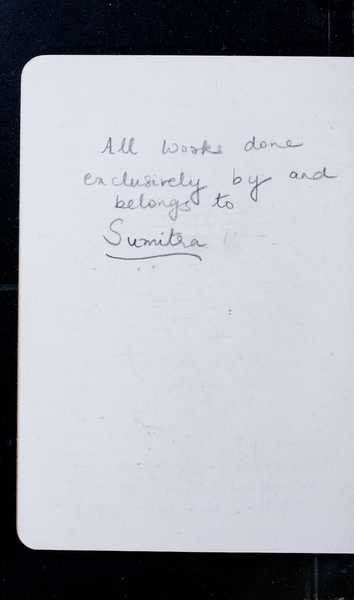 All works done
exclusively by and
belongs to
Sumitra